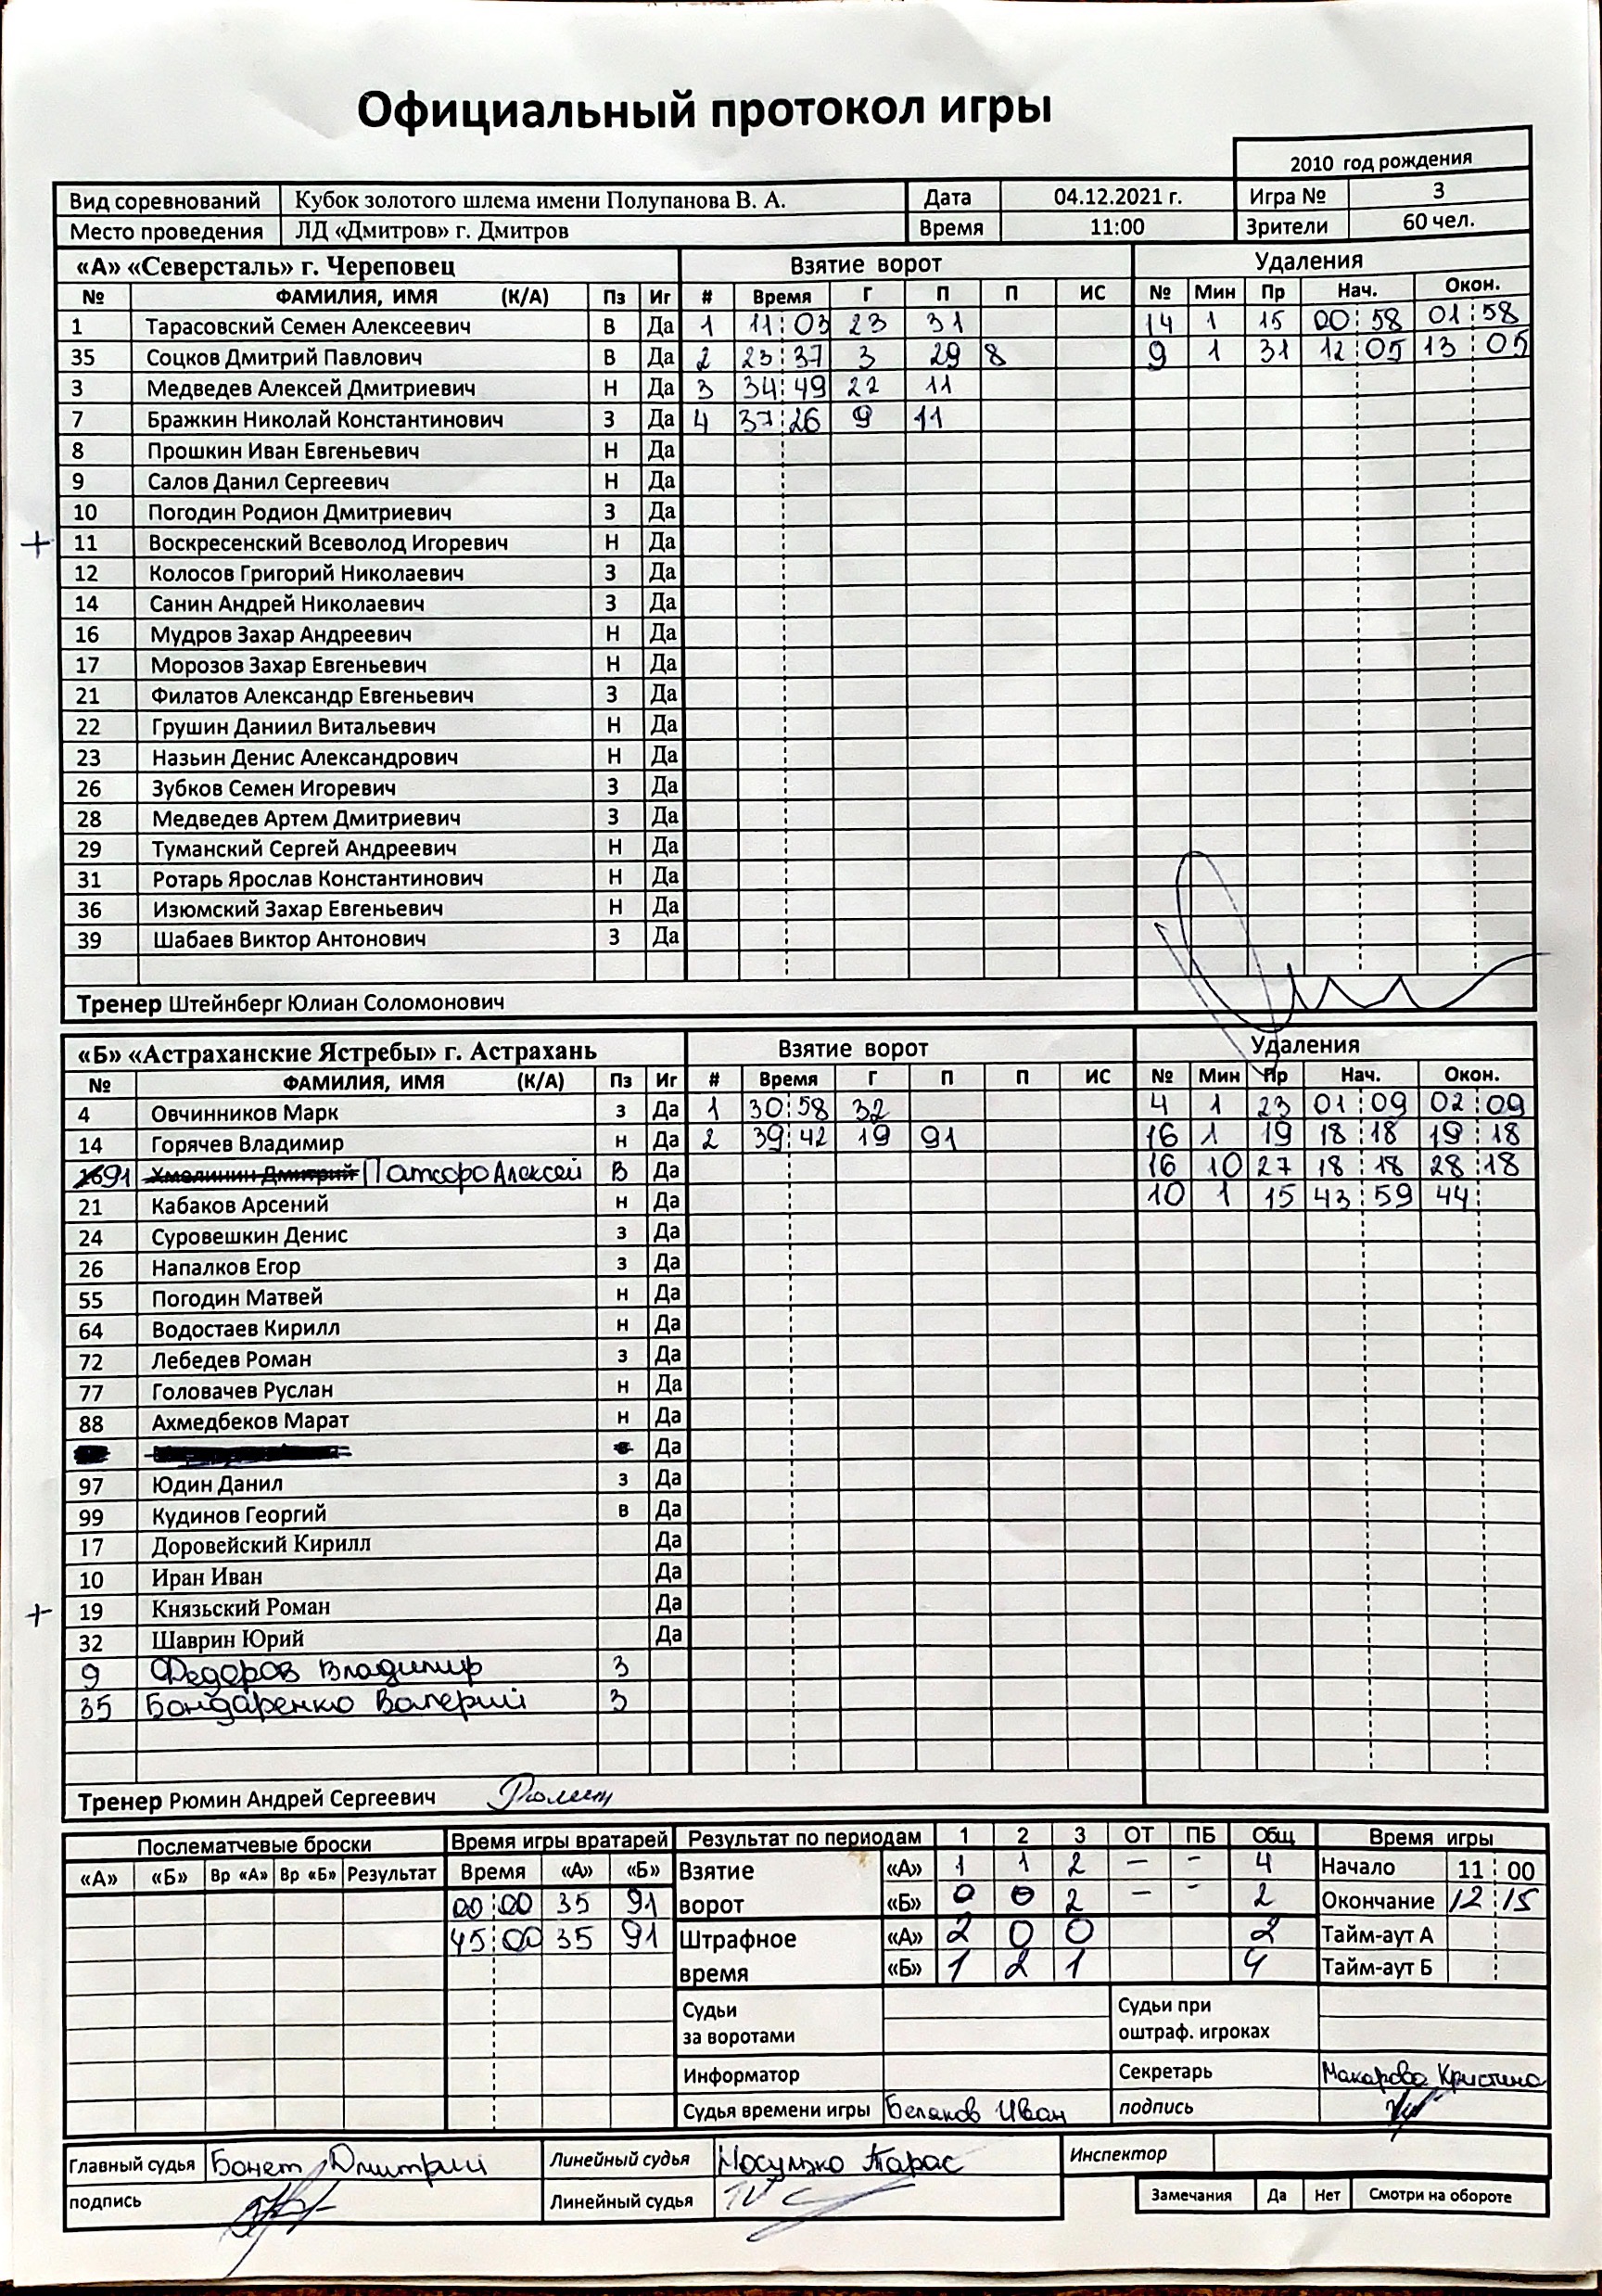 Официальный протокол игры
2010 год рождения
Вид соревнований Кубок золотого шлема имени Полупанова В. А. Дата 04.12.2021 г. Игра № 3
Место проведения ЛД «Дмитров» г. Дмитров Время 11:00 Зрители 60 чел.
«А» «Северсталь» г. Череповец Взятие ворот Удаления
№ ФАМИЛИЯ, ИМЯ (К/А) Пз Иг # Время Г П П ИС № Мин Пр Нач. Окон.
1 Тарасовский Семен Алексеевич В Да 1 11:03 23 31 14 1 15 00:58 01:58
35 Соцков Дмитрий Павлович В Да 2 23:37 3 29 8 9 1 31 12:05 13:05
3 Медведев Алексей Дмитриевич Н Да 3 34:49 22 11
7 Бражкин Николай Константинович З Да 4 37:26 9 11
8 Прошкин Иван Евгеньевич Н Да
9 Салов Данил Сергеевич Н Да
10 Погодин Родион Дмитриевич З Да
+ 11 Воскресенский Всеволод Игоревич Н Да
12 Колосов Григорий Николаевич З Да
14 Санин Андрей Николаевич З Да
16 Мудров Захар Андреевич Н Да
17 Морозов Захар Евгеньевич Н Да
21 Филатов Александр Евгеньевич З Да
22 Грушин Даниил Витальевич Н Да
23 Назьин Денис Александрович Н Да
26 Зубков Семен Игоревич З Да
28 Медведев Артем Дмитриевич З Да
29 Туманский Сергей Андреевич Н Да
31 Ротарь Ярослав Константинович Н Да
36 Изюмский Захар Евгеньевич Н Да
39 Шабаев Виктор Антонович З Да
Тренер Штейнберг Юлиан Соломонович
«Б» «Астраханские Ястребы» г. Астрахань Взятие ворот Удаления
№ ФАМИЛИЯ, ИМЯ (К/А) Пз Иг # Время Г П П ИС № Мин Пр Нач. Окон.
4 Овчинников Марк з Да 1 30:58 32 4 1 23 01:09 02:09
14 Горячев Владимир н Да 2 39:42 19 91 16 1 19 18:18 19:18
91 Алексей В Да 16 10 27 18:18 28:18
21 Кабаков Арсений н Да 10 1 15 43:59 44
24 Суровешкин Денис з Да
26 Напалков Егор з Да
55 Погодин Матвей н Да
64 Водостаев Кирилл н Да
72 Лебедев Роман з Да
77 Головачев Руслан н Да
88 Ахмедбеков Марат н Да
Да
97 Юдин Данил з Да
99 Кудинов Георгий в Да
17 Доровейский Кирилл Да
10 Иран Иван Да
+ 19 Князьский Роман Да
32 Шаврин Юрий Да
9 Федоров Владимир З
35 Бондаренко Валерий З
Тренер Рюмин Андрей Сергеевич
Послематчевые броски Время игры вратарей Результат по периодам 1 2 3 ОТ ПБ Общ Время игры
«А» «Б» Вр «А» Вр «Б» Результат Время «А» «Б» Взятие «А» 1 1 2 – - 4 Начало 11:00
00:00 35 91 ворот «Б» 0 0 2 – - 2 Окончание 12:15
45:00 35 91 Штрафное «А» 2 0 0 2 Тайм-аут А
время «Б» 1 21 1 4 Тайм-аут Б
Судьи за воротами Судьи при оштраф. игроках
Информатор Секретарь Макарова Кристина
Судья времени игры Беляков Иван подпись
Главный судья Бонет Дмитрий Линейный судья Тарас Инспектор
подпись Линейный судья Замечания Да Нет Смотри на обороте